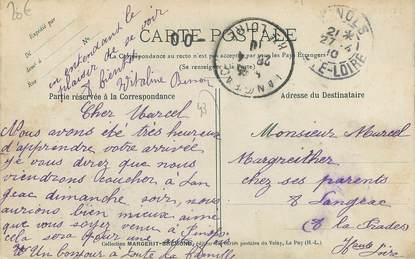 20€
CARTE POSTALE
La Correspondance au recto n'est pas acceptée par tous les Pays Étrangers
(Se renseigner à la Poste)
Expédié par
en attendant le
plaisir de se voir
à bientôt
Vitaline
00-
LANGEAC
Hte LOIRE
21
27 -4
10
Hte-LOIRE
Partie réservée à la Correspondance
Adresse du Destinataire
43
Cher Marcel
Nous avons été très heureux
d'apprendre votre arrivée
je vous dirai que nous
viendrons coucher à Lan
geac dimanche soir, nous
aurions bien mieux aimé
que vous soyez venu à
cela sera pour une
Un bonjour à toute la famille
Monsieur Marcel
Margreither
chez ses parents
à Langeac
à la Prades
Haute
Loire
Collection MARGERIT-BRÉMOND, cartes postales du Velay, Le Puy (H.-L.)